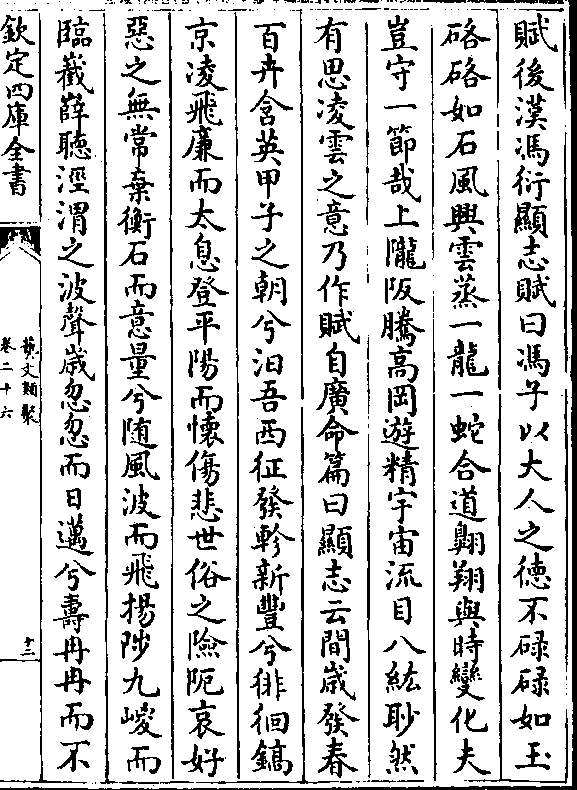 賦後漢馮衍顯志賦曰馮子以大人之德不碌碌如玉
硌硌如石風興雲蒸一龍一蛇合道翺翔與時變化夫
豈守一節哉上隴阪騰高岡遊精宇宙流目八紘眇然
有思凌雲之意乃作賦自廣命篇曰顯志云開歳發春
百卉含英甲子之朝兮汩吾西征發軫新豐兮徘徊鎬
京凌飛廉而太息登平陽而懷傷悲世俗之險阨哀好
惡之無常棄衡石而意量兮随風波而飛揚陟九嵕而
臨嶻嶭聽涇渭之波聲歳忽忽而日邁兮壽冉冉而不
欽定四庫全書
藝文類聚
卷二十六
十二